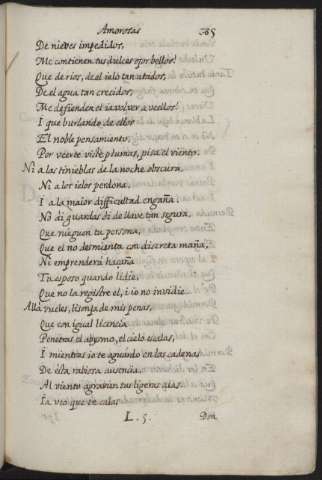 Amorosas 365
De nieves impedidos,
Me contienen tus dulces ojos bellos!
Que de rios, de el ielo tan atados,
De el agua tan crecidos,
Me defienden el ia volver a vellos!
I que burlando de ellos
El noble pensamiento,
Por verte viste plumas, pisa el viento.
Ni a las tinieblas de la noche obscura,
Ni a los ielos perdona,
I a la maior difficultad engaña.
No ai guardas oi de llave tan segura,
Que nieguen tu persona,
Que el no desmienta con discreta maña,
Ni emprenderà hazaña
Tu esposo quando lidie,
Que no la registre el, i io no invidie.
Allà vueles, lisonja de mis penas,
Que con igual licencia
Penetras el abysmo, el cielo escalas,
I mientras io te aguardo en las cadenas
De esta rabiosa ausencia,
Al viento agravien tus ligeras alas.
Ia veo que te calas
L. 5. Don